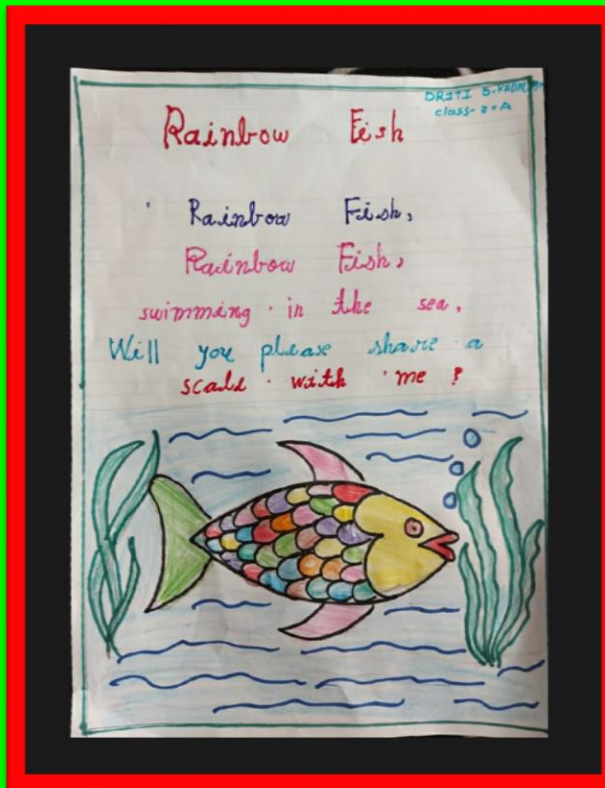 DRITI S.
class-2-A
Rainbow Fish
Rainbow Fish,
Rainbow Fish,
swimming in the sea,
Will you please share a
scale with me ?